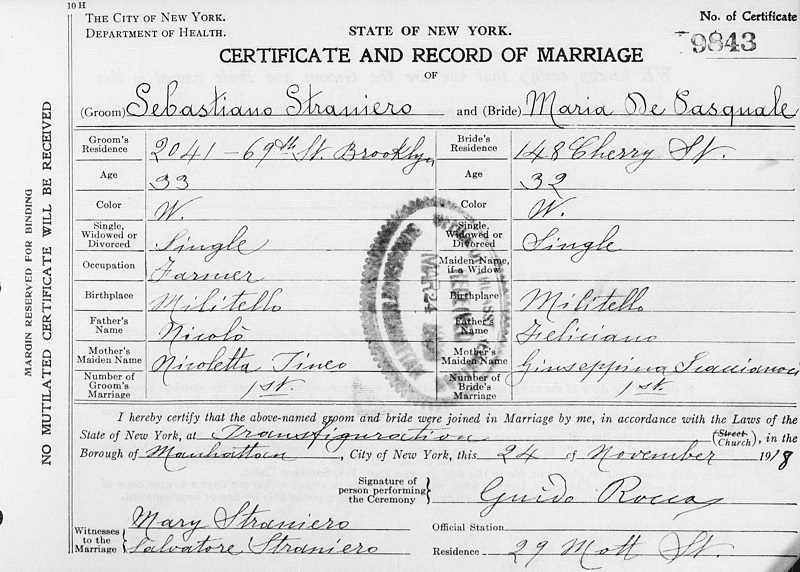 10 H
THE CITY OF NEW YORK.
DEPARTMENT OF HEALTH.
STATE OF NEW YORK.
No. of Certificate
9843
CERTIFICATE AND RECORD OF MARRIAGE
OF
(Groom) Sebastiano Straniero and (Bride) Maria De Pasquale
Groom's Residence 2041 - 69th St. Brooklyn Bride's Residence 148 Cherry St.
Age 33 Age 32
Color W. Color W.
Single, Widowed or Divorced Single Single, Widowed or Divorced Single
Occupation Farmer Maiden Name, if a Widow
Birthplace Militello Birthplace Militello
Father's Name Nicolò Father's Name Feliciano
Mother's Maiden Name Nicoletta Tineo Mother's Maiden Name Giuseppina
Number of Groom's Marriage 1st Number of Bride's Marriage 1st
I hereby certify that the above-named groom and bride were joined in Marriage by me, in accordance with the Laws of the
State of New York, at Transfiguration (Street Church), in the
Borough of Manhattan, City of New York, this 24 of November 1918
Signature of person performing the Ceremony Guido Rocca
Witnesses to the Marriage Mary Straniero
Salvatore Straniero
Official Station
Residence 29 Mott St.
MARGIN RESERVED FOR BINDING
NO MUTILATED CERTIFICATE WILL BE RECEIVED
MAR 24